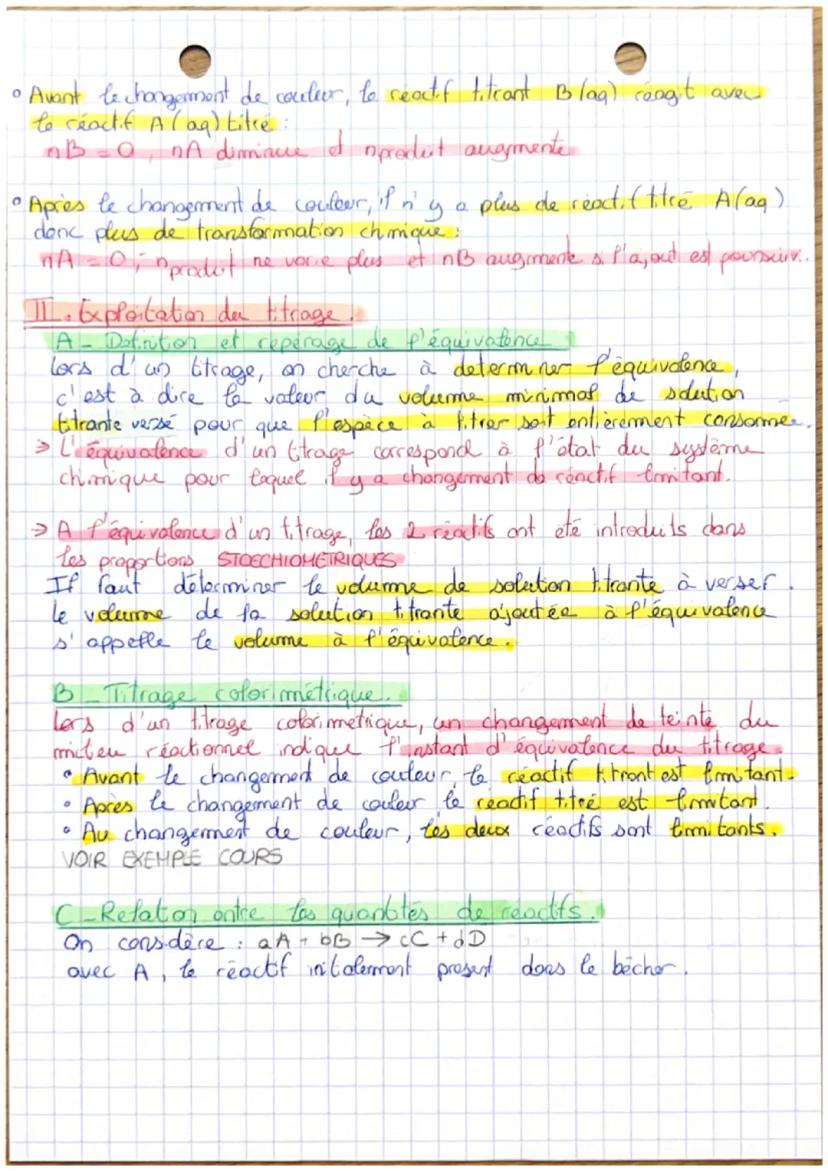 ° Avant le changement de couleur, le réactif titrant B(aq) réagit avec
le réactif A(aq) titré :
nB = 0, nA diminue et nproduit augmente
° Après le changement de couleur, il n'y a plus de réactif titré A(aq)
donc plus de transformation chimique :
nA = 0 ; nproduit ne varie plus et nB augmente si l'ajout est poursuivi.
II. Exploitation du titrage.
A - Définition et repérage de l'équivalence
Lors d'un titrage, on cherche à déterminer l'équivalence,
c'est à dire la valeur du volume minimal de solution
titrante versé pour que l'espèce à titrer soit entièrement consommée.
→ L'équivalence d'un titrage correspond à l'état du système
chimique pour lequel il y a changement de réactif limitant.
→ A l'équivalence d'un titrage, les 2 réactifs ont été introduits dans
les proportions STOECHIOMETRIQUES
Il faut déterminer le volume de solution titrante à verser.
Le volume de la solution titrante ajoutée à l'équivalence
s'appelle le volume à l'équivalence.
B - Titrage colorimétrique.
Lors d'un titrage colorimétrique, un changement de teinte du
milieu réactionnel indique l'instant d'équivalence du titrage.
• Avant le changement de couleur, le réactif titrant est limitant.
• Après le changement de couleur le réactif titré est limitant.
• Au changement de couleur, les deux réactifs sont limitants.
VOIR EXEMPLE COURS
C - Relation entre les quantités de réactifs.
On considère : aA + bB → cC + dD
avec A, le réactif initalement présent dans le bécher.